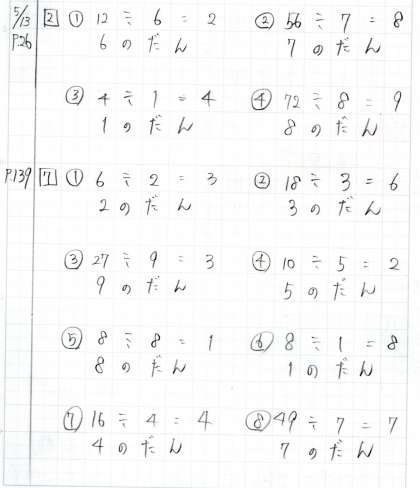 5/13 2 ① 12 ÷ 6 = 2 ② 56 ÷ 7 = 8
P.26 6 の だ ん 7 の だ ん
③ 4 ÷ 1 = 4 ④ 72 ÷ 8 = 9
1 の だ ん 8 の だ ん
P.139 7 ① 6 ÷ 2 = 3 ② 18 ÷ 3 = 6
2 の だ ん 3 の だ ん
③ 27 ÷ 9 = 3 ④ 10 ÷ 5 = 2
9 の だ ん 5 の だ ん
⑤ 8 ÷ 8 = 1 ⑥ 8 ÷ 1 = 8
8 の だ ん 1 の だ ん
⑦ 16 ÷ 4 = 4 ⑧ 49 ÷ 7 = 7
4 の だ ん 7 の だ ん